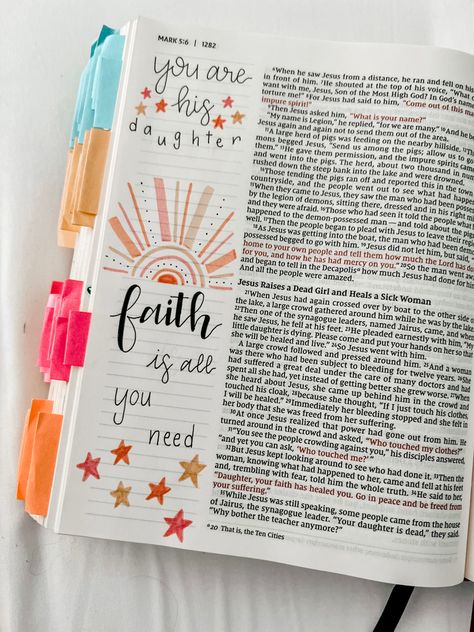 MARK 5:6 | 1282
you are
his
daughter
faith
is all
you
need
6When he saw Jesus from a distance, he ran and fell on his
in front of him. 7He shouted at the top of his voice, "What
want with me, Jesus, Son of the Most High God? In God's name
torture me!" 8For Jesus had said to him, "Come out of this ma
impure spirit!"
9Then Jesus asked him, "What is your name?"
"My name is Legion," he replied, "for we are many." 10And he
Jesus again and again not to send them out of the area.
11A large herd of pigs was feeding on the nearby hillside. 12The
mons begged Jesus, "Send us among the pigs; allow us to go
them." 13He gave them permission, and the impure spirits came
and went into the pigs. The herd, about two thousand in num
rushed down the steep bank into the lake and were drowned.
14Those tending the pigs ran off and reported this in the town
countryside, and the people went out to see what had happe
15When they came to Jesus, they saw the man who had been poss
by the legion of demons, sitting there, dressed and in his right
and they were afraid. 16Those who had seen it told the people wha
happened to the demon-possessed man—and told about the pig
well. 17Then the people began to plead with Jesus to leave their reg
18As Jesus was getting into the boat, the man who had been de
possessed begged to go with him. 19Jesus did not let him, but said,
home to your own people and tell them how much the Lord has
for you, and how he has had mercy on you." 20So the man went a
and began to tell in the Decapolis a how much Jesus had done for hi
And all the people were amazed.
Jesus Raises a Dead Girl and Heals a Sick Woman
21When Jesus had again crossed over by boat to the other side o
the lake, a large crowd gathered around him while he was by the lake
22Then one of the synagogue leaders, named Jairus, came, and when
he saw Jesus, he fell at his feet. 23He pleaded earnestly with him, "My
little daughter is dying. Please come and put your hands on her so tha
she will be healed and live." 24So Jesus went with him.
A large crowd followed and pressed around him. 25And a woman
was there who had been subject to bleeding for twelve years. 26She
had suffered a great deal under the care of many doctors and had
spent all she had, yet instead of getting better she grew worse. 27When
she heard about Jesus, she came up behind him in the crowd and
touched his cloak, 28because she thought, "If I just touch his clothes,
I will be healed." 29Immediately her bleeding stopped and she felt in
her body that she was freed from her suffering.
30At once Jesus realized that power had gone out from him. He
turned around in the crowd and asked, "Who touched my clothes?"
31"You see the people crowding against you," his disciples answered,
"and yet you can ask, 'Who touched me?'"
32But Jesus kept looking around to see who had done it. 33Then the
woman, knowing what had happened to her, came and fell at his feet
and, trembling with fear, told him the whole truth. 34He said to her,
"Daughter, your faith has healed you. Go in peace and be freed from
your suffering."
35While Jesus was still speaking, some people came from the house
of Jairus, the synagogue leader. "Your daughter is dead," they said.
"Why bother the teacher anymore?"
a 20 That is, the Ten Cities